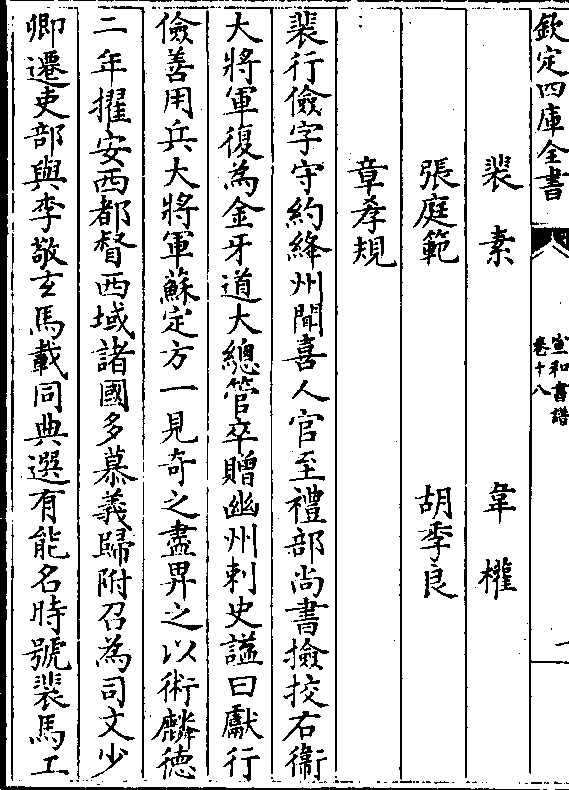 欽定四庫全書
宣和書譜
卷十八
一
裴素 韋權
張庭範 胡季良
章孝規
裴行儉字守約絳州聞喜人官至禮部尚書撿挍右衛
大將軍復為金牙道大總管卒贈幽州刺史謚曰獻行
儉善用兵大將軍蘇定方一見奇之盡畀之以術麟徳
二年擢安西都督西域諸國多慕義歸附召為司文少
卿遷吏部與李敬𤣥馬載同典選有能名時號裴馬工